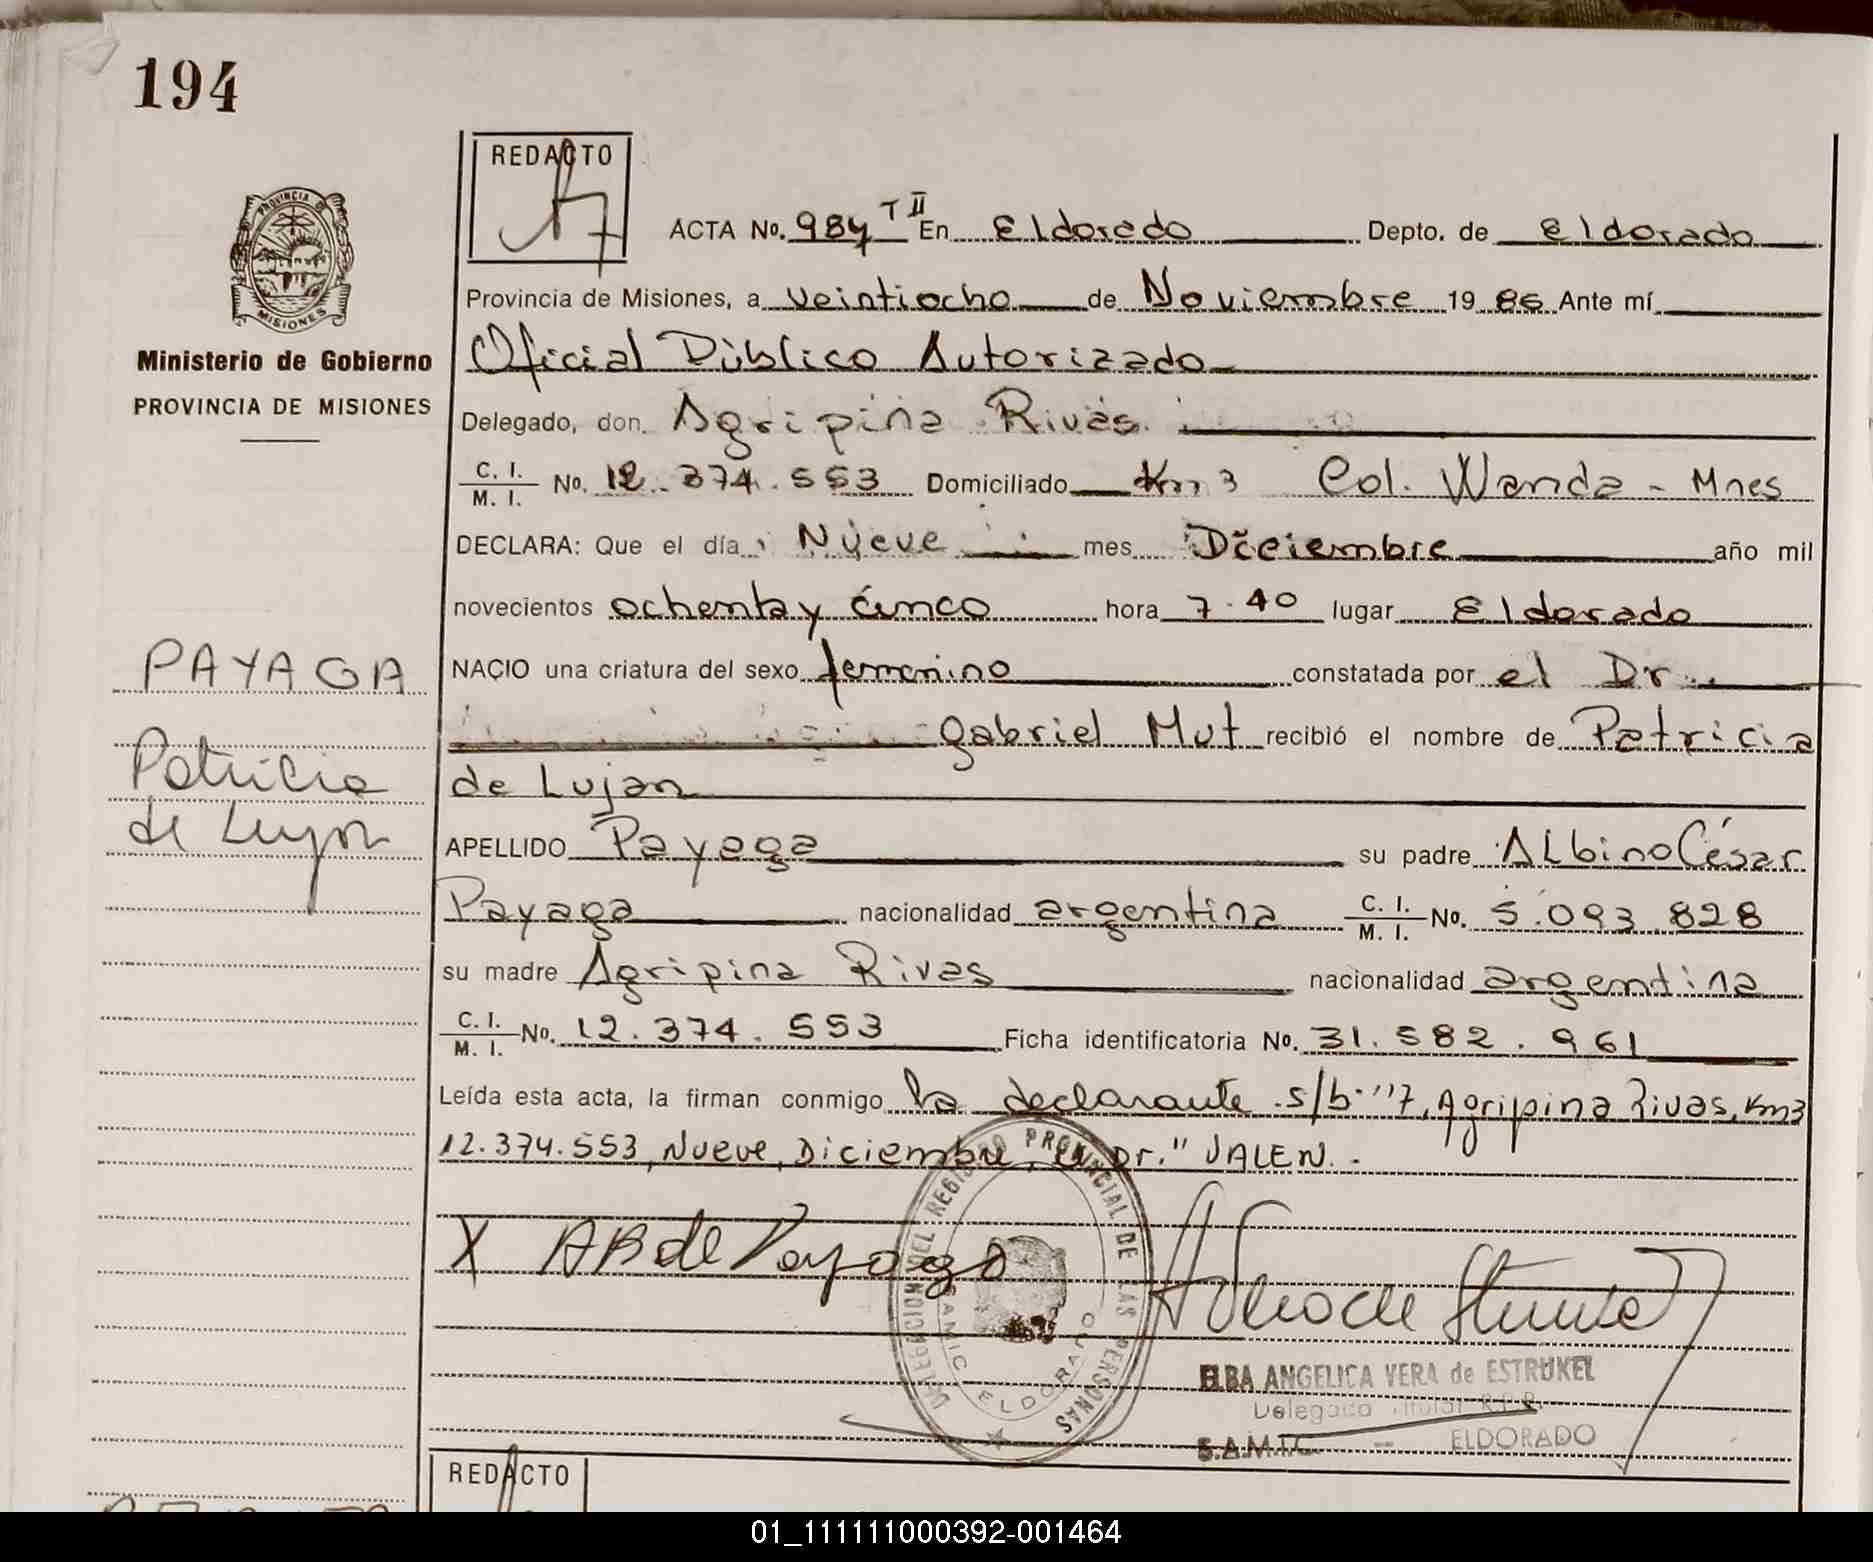 194
REDACTO
PROVINCIA DE
MISIONES
Ministerio de Gobierno
PROVINCIA DE MISIONES
ACTA No. 984 T II En Eldorado Depto. de Eldorado
Provincia de Misiones, a veintiocho de Noviembre 19 86 Ante mí
Oficial Público Autorizado
Delegado, don Agripina Rivas
C. I. / M. I. No. 12.374.553 Domiciliado Km 3 Col. Wanda - Mnes
DECLARA: Que el día Nueve mes Diciembre año mil
novecientos ochenta y cinco hora 7.40 lugar Eldorado
NACIO una criatura del sexo femenino constatada por el Dr.
Gabriel Mut recibió el nombre de Patricia
de Lujan
APELLIDO Payaga su padre Albino César
Payaga nacionalidad argentina C. I. / M. I. No. 5.093.828
su madre Agripina Rivas nacionalidad argentina
C. I. / M. I. No. 12.374.553 Ficha identificatoria No. 31.582.961
Leída esta acta, la firman conmigo la declarante s/b "7, Agripina Rivas, Km3
12.374.553, Nueve, Diciembre, el Dr." VALEN.-
PAYAGA
Patricia
de Lujan
X AR de Payaga
DELEGACION DEL REGISTRO PROVINCIAL DE LAS PERSONAS
SAMIC ELDORADO
ELBA ANGELICA VERA de ESTRUKEL
Delegada Titular R.P.P.
S.A.M.I.C. - ELDORADO
REDACTO
01_111111000392-001464